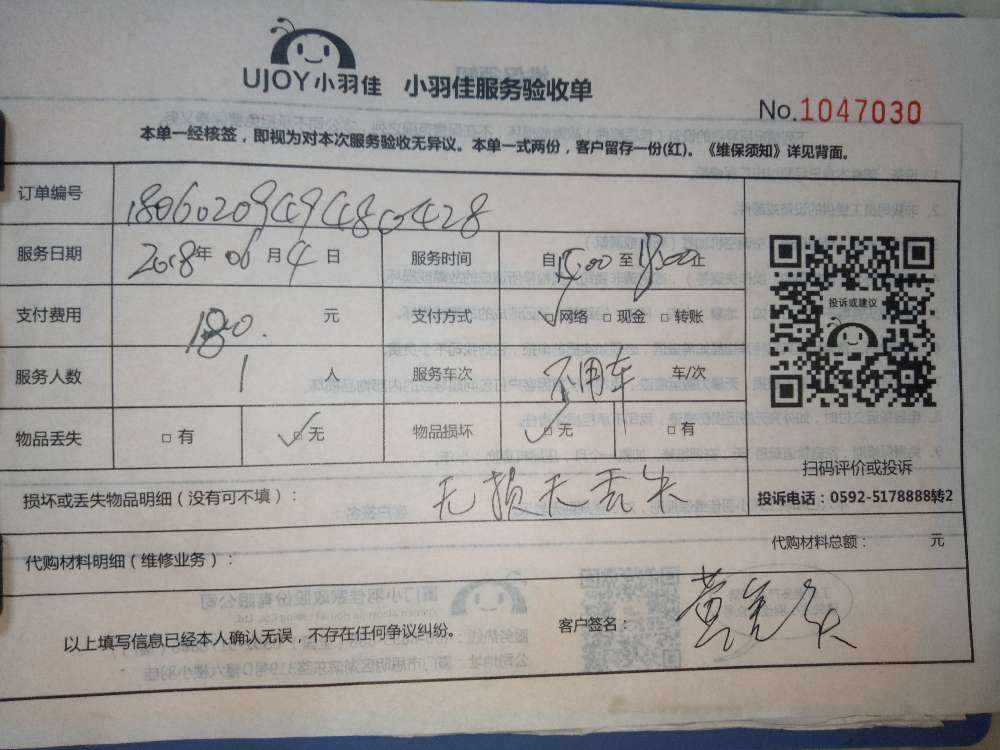 UJOY小羽佳 小羽佳服务验收单
No.1047030
本单一经核签，即视为对本次服务验收无异议。本单一式两份，客户留存一份(红)。《维保须知》详见背面。
订单编号 1806020949480428
服务日期 2018年 06月 4日 服务时间 自14:00至18:00止
支付费用 180. 元 支付方式 ☑网络 □现金 □转账
服务人数 1 人 服务车次 不用车 车/次
物品丢失 □有 ☑无 物品损坏 ☑无 □有
投诉或建议
扫码评价或投诉
投诉电话：0592-5178888转2
损坏或丢失物品明细（没有可不填）： 无损无丢失
代购材料明细（维修业务）：
代购材料总额： 元
以上填写信息已经本人确认无误，不存在任何争议纠纷。 客户签名：